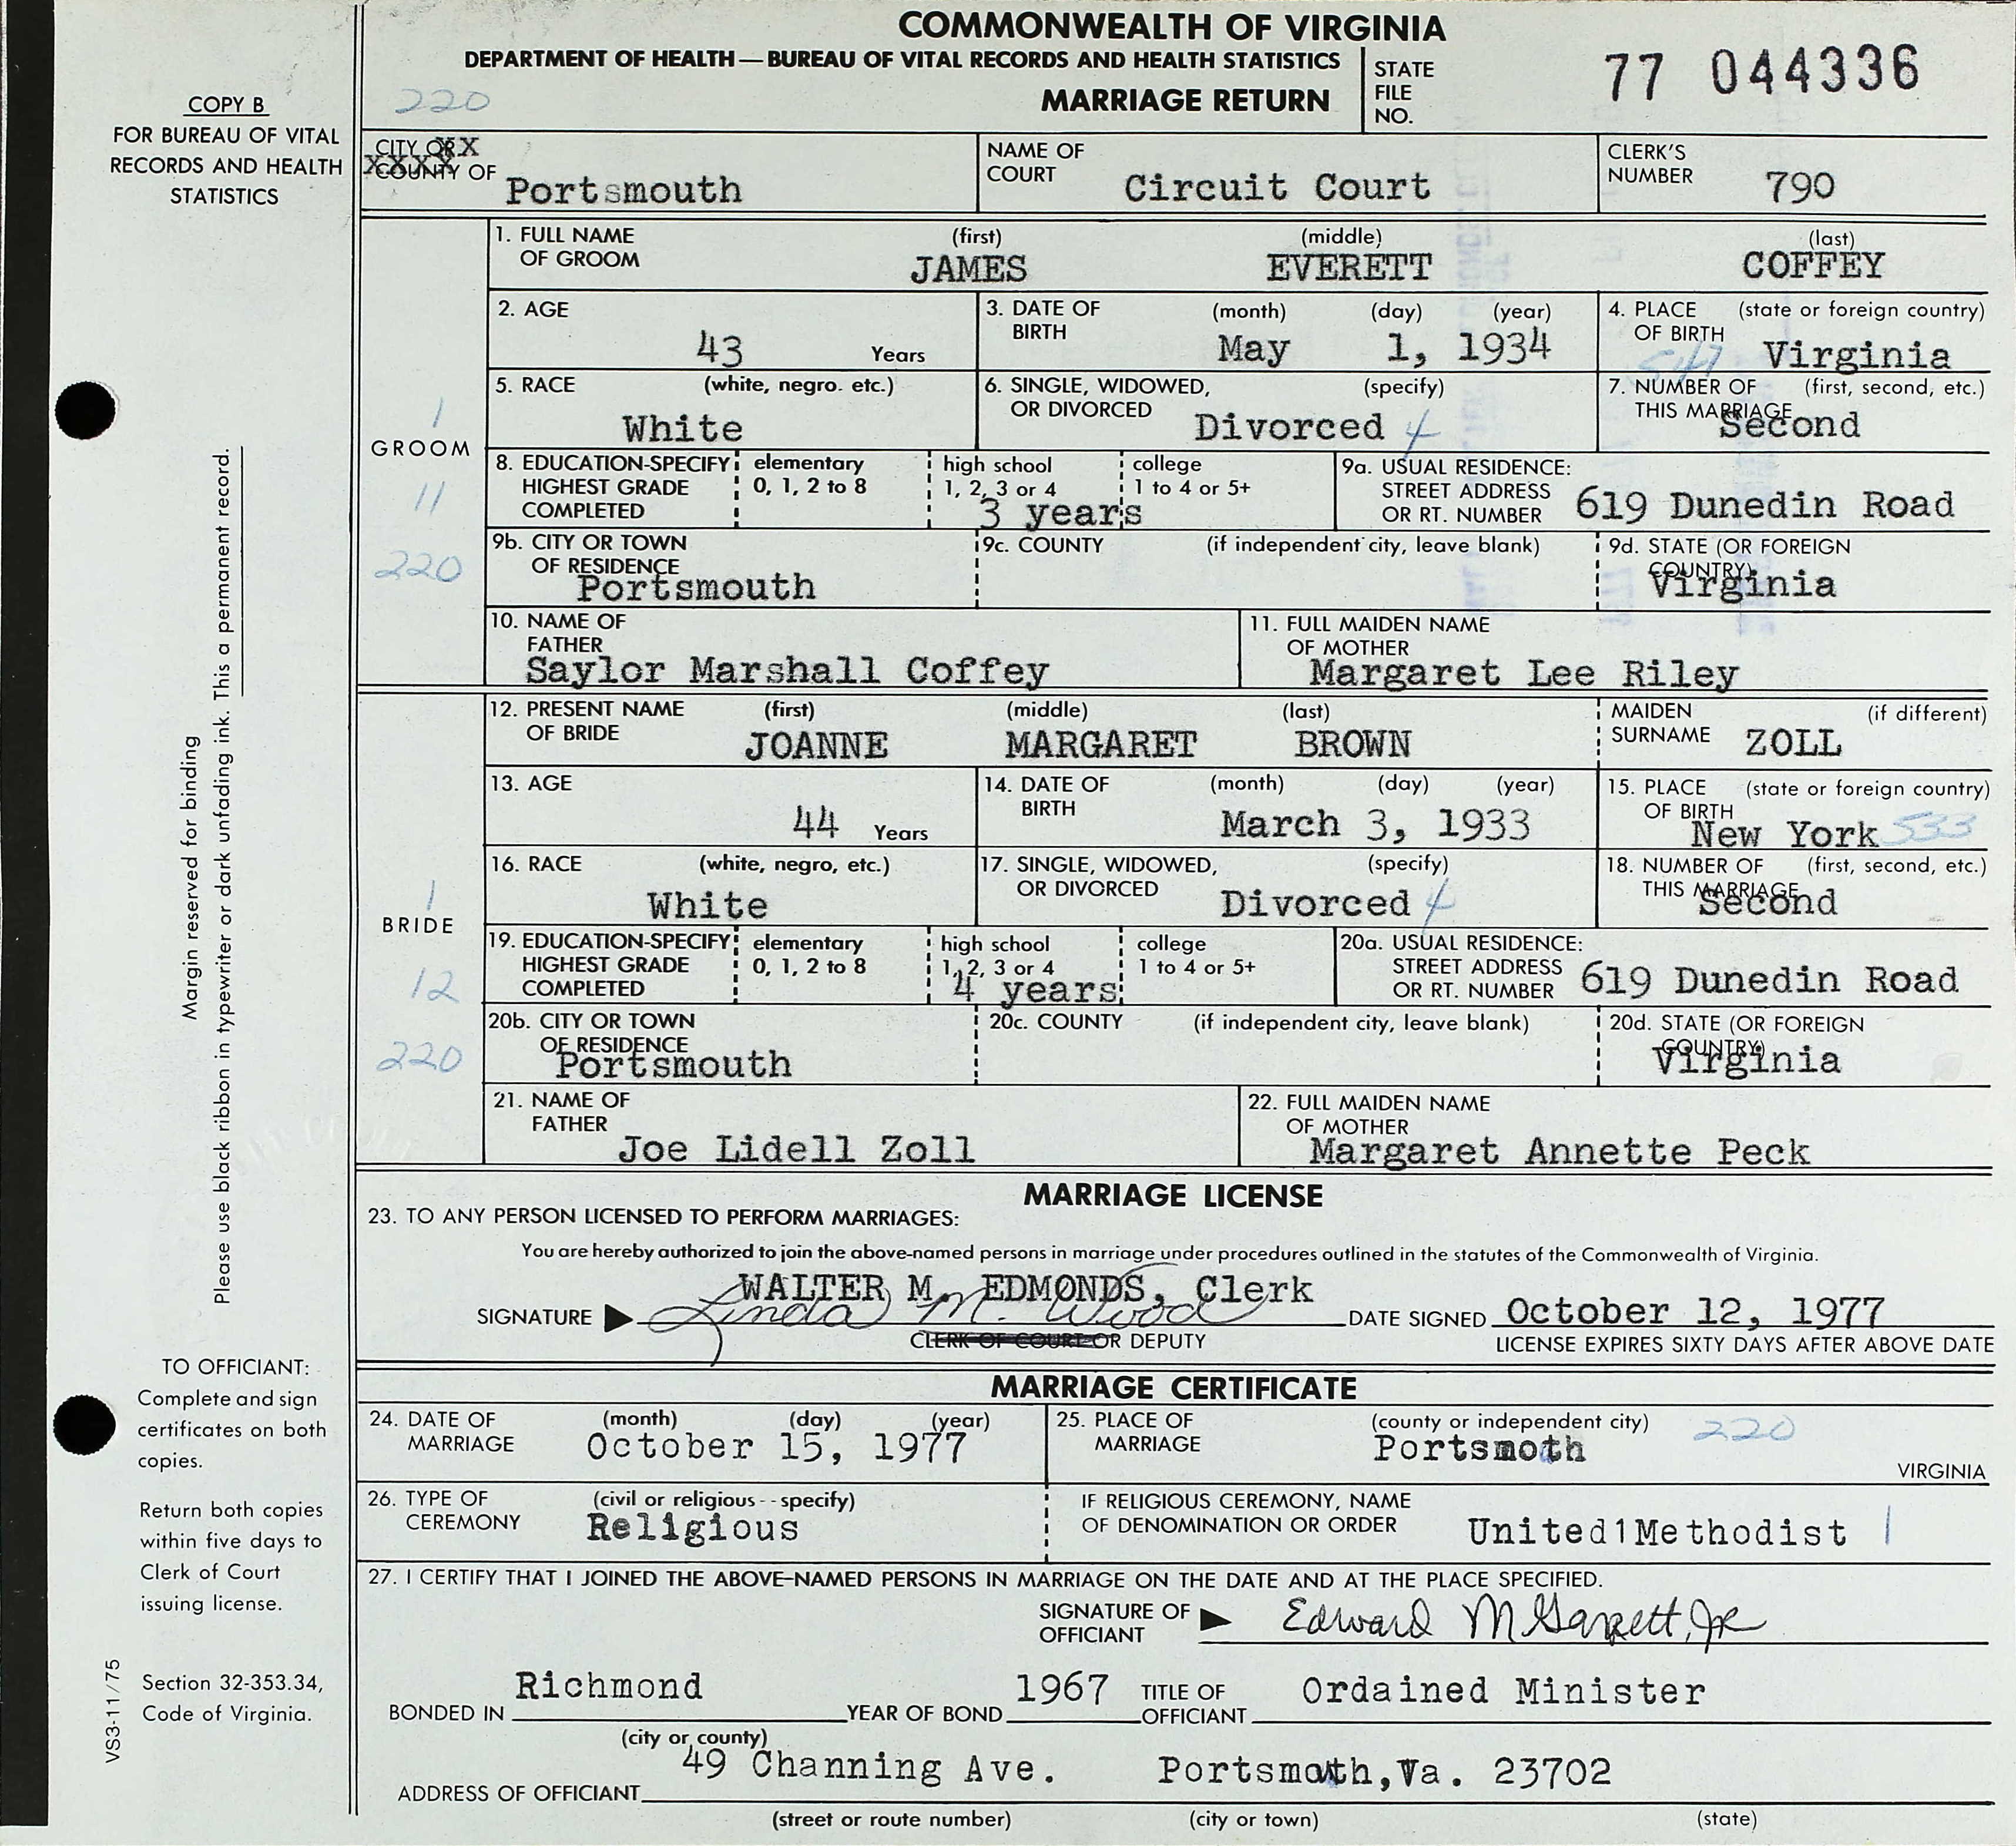 COMMONWEALTH OF VIRGINIA
DEPARTMENT OF HEALTH — BUREAU OF VITAL RECORDS AND HEALTH STATISTICS
220
MARRIAGE RETURN
STATE FILE NO. 77 044336
COPY B
FOR BUREAU OF VITAL
RECORDS AND HEALTH
STATISTICS
CITY OR XX
XXXXX COUNTY OF Portsmouth
NAME OF COURT Circuit Court
CLERK'S NUMBER 790
GROOM
1
11
220
1. FULL NAME OF GROOM (first) JAMES (middle) EVERETT (last) COFFEY
2. AGE 43 Years
3. DATE OF BIRTH (month) (day) (year) May 1, 1934
4. PLACE OF BIRTH (state or foreign country) Virginia 547
5. RACE (white, negro. etc.) White
6. SINGLE, WIDOWED, OR DIVORCED (specify) Divorced 4
7. NUMBER OF THIS MARRIAGE (first, second, etc.) Second
8. EDUCATION-SPECIFY HIGHEST GRADE COMPLETED elementary 0, 1, 2 to 8 high school 1, 2, 3 or 4 3 years college 1 to 4 or 5+
9a. USUAL RESIDENCE: STREET ADDRESS OR RT. NUMBER 619 Dunedin Road
9b. CITY OR TOWN OF RESIDENCE Portsmouth
9c. COUNTY (if independent city, leave blank)
9d. STATE (OR FOREIGN COUNTRY) Virginia
10. NAME OF FATHER Saylor Marshall Coffey
11. FULL MAIDEN NAME OF MOTHER Margaret Lee Riley
BRIDE
1
12
220
12. PRESENT NAME OF BRIDE (first) JOANNE (middle) MARGARET (last) BROWN
MAIDEN SURNAME (if different) ZOLL
13. AGE 44 Years
14. DATE OF BIRTH (month) (day) (year) March 3, 1933
15. PLACE OF BIRTH (state or foreign country) New York 533
16. RACE (white, negro, etc.) White
17. SINGLE, WIDOWED, OR DIVORCED (specify) Divorced 4
18. NUMBER OF THIS MARRIAGE (first, second, etc.) Second
19. EDUCATION-SPECIFY HIGHEST GRADE COMPLETED elementary 0, 1, 2 to 8 high school 1, 2, 3 or 4 4 years college 1 to 4 or 5+
20a. USUAL RESIDENCE: STREET ADDRESS OR RT. NUMBER 619 Dunedin Road
20b. CITY OR TOWN OF RESIDENCE Portsmouth
20c. COUNTY (if independent city, leave blank)
20d. STATE (OR FOREIGN COUNTRY) Virginia
21. NAME OF FATHER Joe Lidell Zoll
22. FULL MAIDEN NAME OF MOTHER Margaret Annette Peck
MARRIAGE LICENSE
23. TO ANY PERSON LICENSED TO PERFORM MARRIAGES:
You are hereby authorized to join the above-named persons in marriage under procedures outlined in the statutes of the Commonwealth of Virginia.
WALTER M. EDMONDS, Clerk
SIGNATURE Linda M. Wood DATE SIGNED October 12, 1977
CLERK OF COURT OR DEPUTY
LICENSE EXPIRES SIXTY DAYS AFTER ABOVE DATE
MARRIAGE CERTIFICATE
24. DATE OF MARRIAGE (month) (day) (year) October 15, 1977
25. PLACE OF MARRIAGE (county or independent city) Portsmoth 220 VIRGINIA
26. TYPE OF CEREMONY (civil or religious--specify) Religious
IF RELIGIOUS CEREMONY, NAME OF DENOMINATION OR ORDER United1Methodist 1
27. I CERTIFY THAT I JOINED THE ABOVE-NAMED PERSONS IN MARRIAGE ON THE DATE AND AT THE PLACE SPECIFIED.
SIGNATURE OF OFFICIANT Edward M Garrett, Jr
BONDED IN Richmond (city or county) YEAR OF BOND 1967 TITLE OF OFFICIANT Ordained Minister
ADDRESS OF OFFICIANT 49 Channing Ave. Portsmouth,Va. 23702
(street or route number) (city or town) (state)
Margin reserved for binding
Please use black ribbon in typewriter or dark unfading ink. This a permanent record.
TO OFFICIANT:
Complete and sign
certificates on both
copies.
Return both copies
within five days to
Clerk of Court
issuing license.
Section 32-353.34,
Code of Virginia.
VS3-11/75